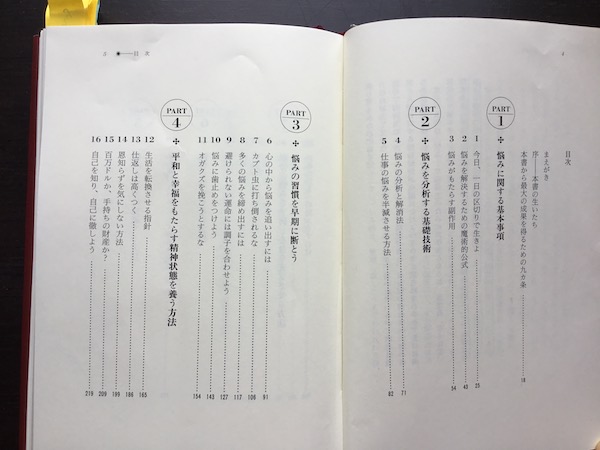 4
目次
まえがき
序――本書の生いたち
本書から最大の成果を得るための九か条 18
PART 1 悩みに関する基本事項
1 今日、一日の区切りで生きよ 25
2 悩みを解決するための魔術的公式 40
3 悩みがもたらす副作用 54
PART 2 悩みを分析する基礎技術
4 悩みの分析と解消法 71
5 仕事の悩みを半減させる方法 82
目次
PART 3 悩みの習慣を早期に断とう
6 心の中から悩みを追い出すには 91
7 カブト虫に打ち倒されるな 106
8 多くの悩みを締め出すには 117
9 避けられない運命には調子を合わせよう 127
10 悩みに歯止めをつけよう 143
11 オガクズを挽こうとするな 154
PART 4 平和と幸福をもたらす精神状態を養う方法
12 生活を転換させる指針 165
13 仕返しは高くつく 186
14 恩知らずを気にしない方法 199
15 百万ドルか、手持ちの財産か? 209
16 自己を知り、自己に徹しよう 219